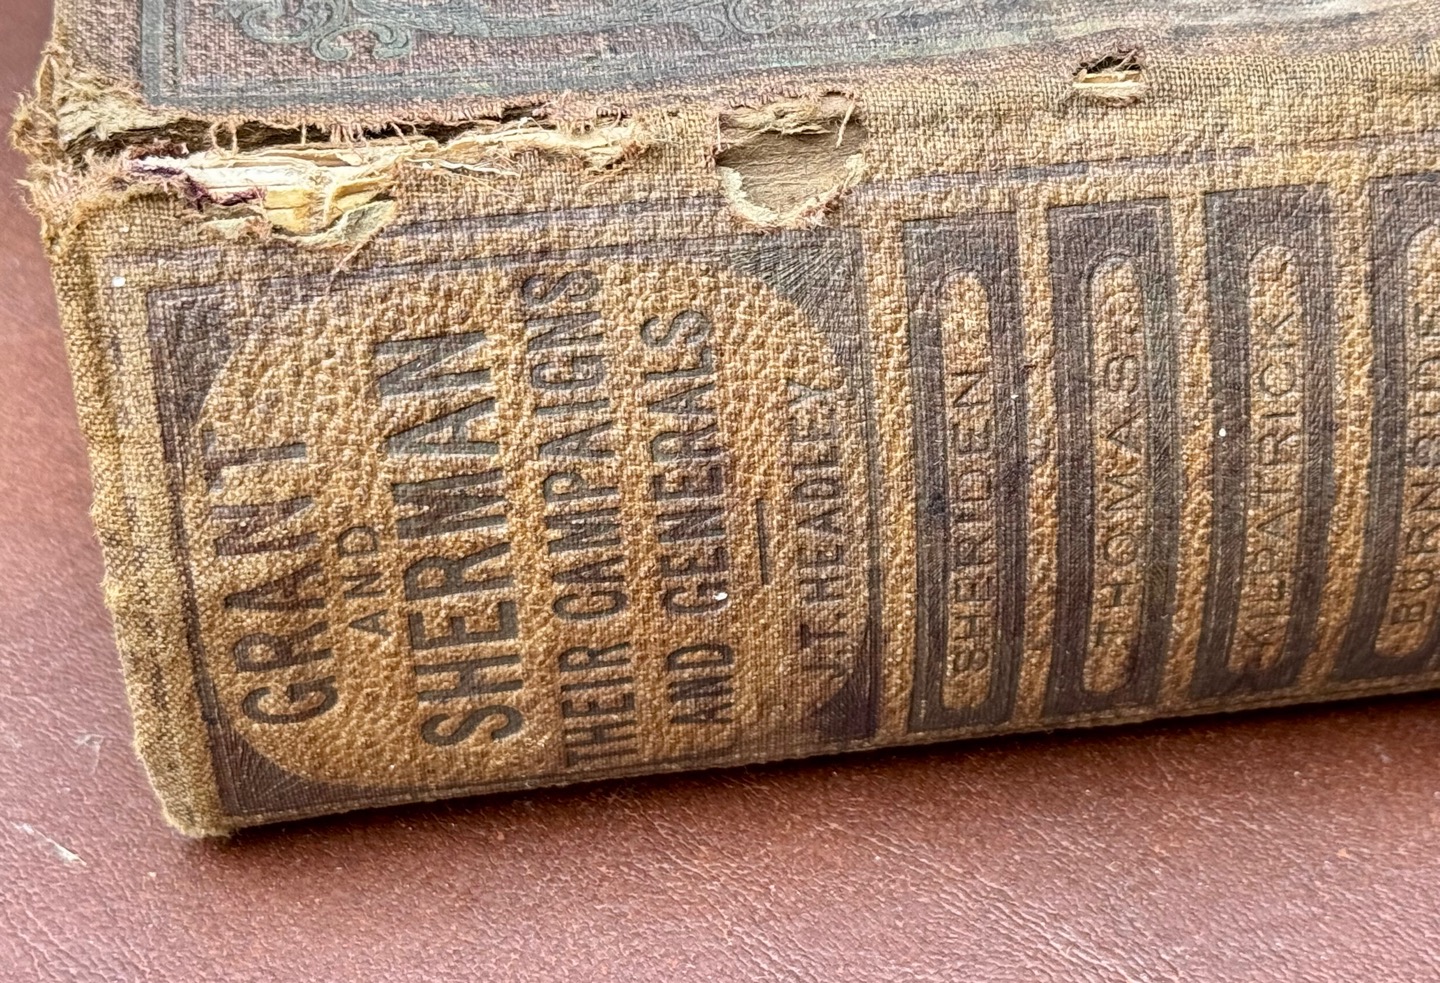 GRANT
AND
SHERMAN
THEIR CAMPAIGNS
AND GENERALS
J.T. HEADLEY
SHERIDEN
THOMAS
KILPATRICK
BURNSIDE